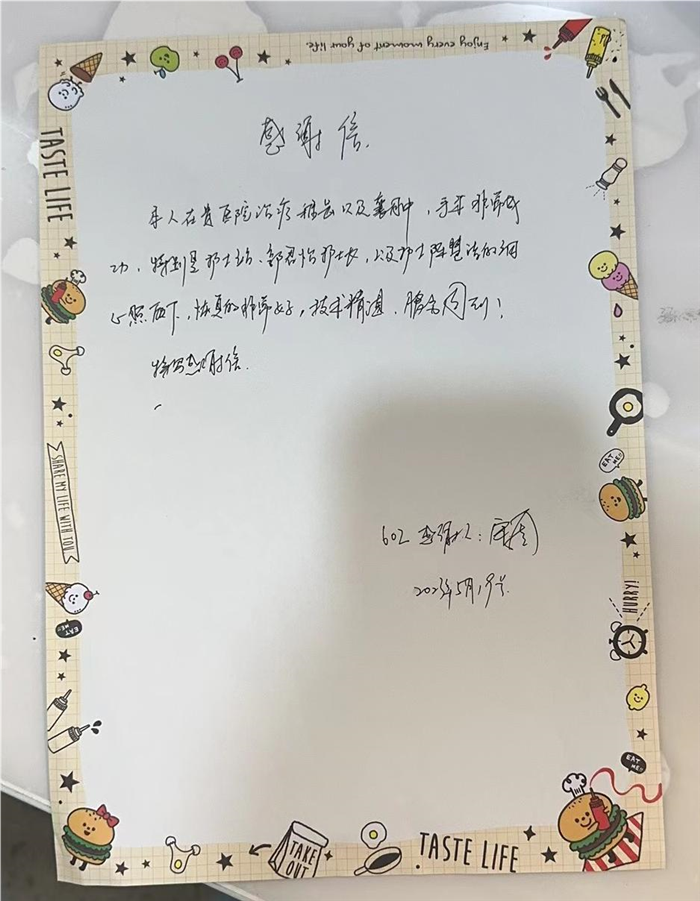 Enjoy every moment of your life.
TASTE LIFE
感谢信.
本人在贵医院治疗 以及 中,手术非常成
功,特别是护士站、郭君怡护士长,以及护士陈慧洁的细
心照顾下,恢复的非常好,技术精湛,服务周到!
特写感谢信.
602 感谢人:
2023年5月19号.
EAT ME!!
SHARE MY LIFE WITH YOU
HURRY!
EAT ME!!
EAT ME!!
TAKE OUT
TASTE LIFE